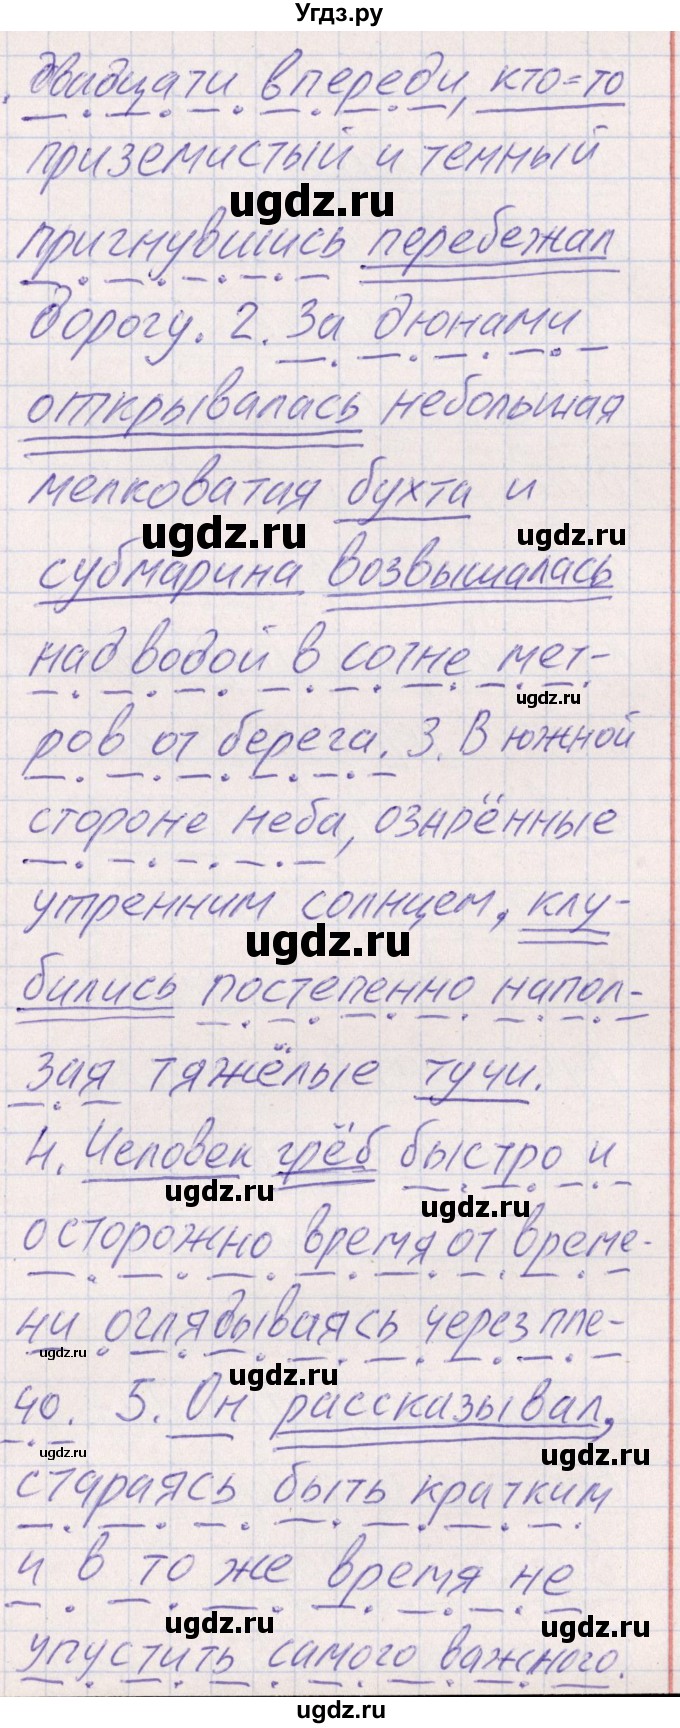 Угдз.ру
двадцати впереди, кто-то
приземистый и темный
ugdz.ru
пригнувшись перебежал
дорогу. 2. За дюнами
открывалась небольшая
мелковатая бухта и
ugdz.ru
ugdz.ru
субмарина возвышалась
над водой в сотне мет-
ugdz.ru
ров от берега. 3. В южной
стороне неба, озарённые
утренним солнцем, клу-
ugdz.ru
бились постепенно напол-
зая тяжёлые тучи.
4. Человек грёб быстро и
ugdz.ru
ugdz.ru
осторожно время от време-
ни оглядываясь через пле-
ugdz.ru
ugdz.ru
чо. 5. Он рассказывал,
ugdz.ru
ugdz.ru
стараясь быть кратким
и в то же время не
ugdz.ru
упустить самого важного.
ugdz.ru